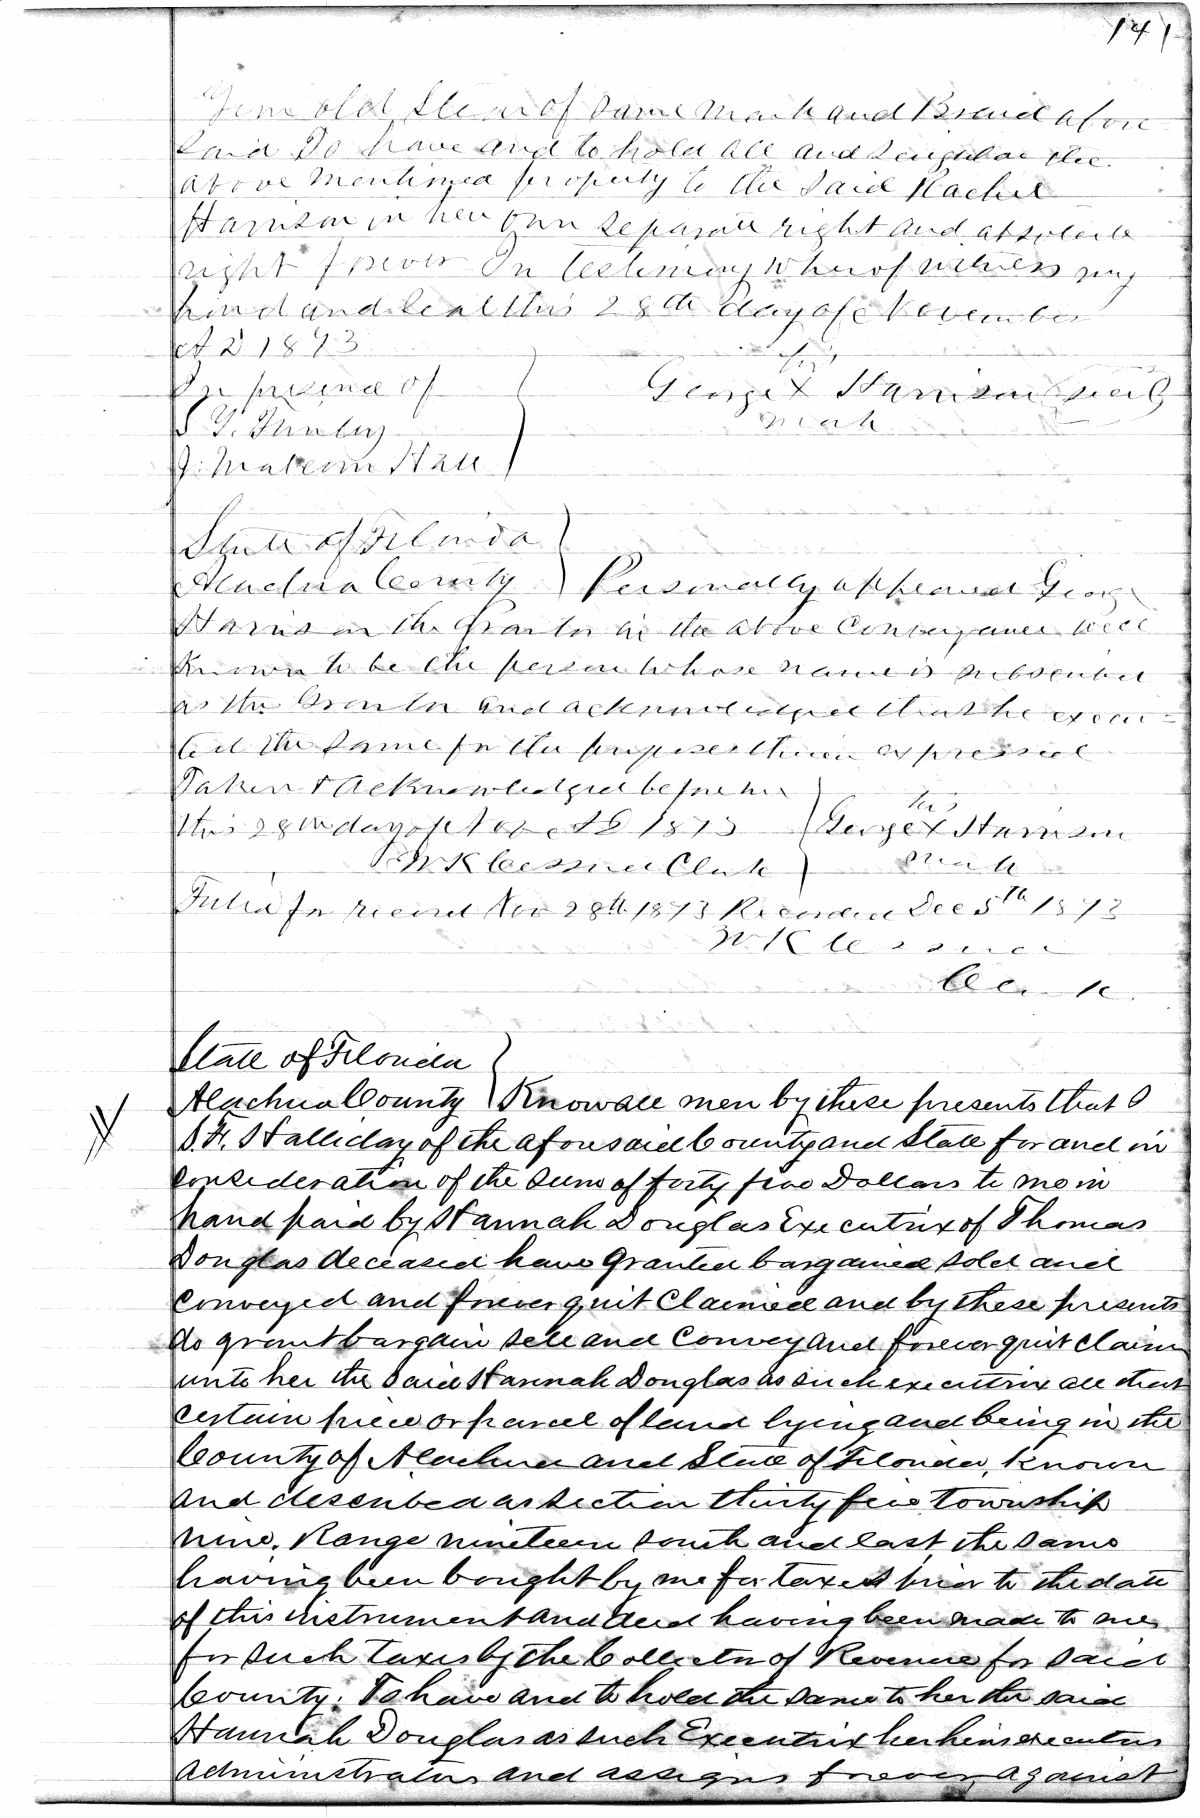 141
Year old Stear of same mark and Brand afore
said To have and to hold all and singular the
above mentioned property to the said Rachel
Harrison in her own separate right and absolute
right forever In testimony whereof witness my
hand and seal this 28th day of November
A D 1873
In presence of
his
George X Harrison (seal)
mark
S Y. Finley
J. Malcom Hall
State of Florida
Alachua County } Personally appeared George
Harrison the Grantor in the above Conveyance well
Known to be the person whose name is subscribed
as the Grantor and acknowledged that he execu=
ted the same for the purposes therein expressed
Taken & acknowledged before me
this 28th day of Nov A D 1873
his
George X Harrison
mark
W K Cessna Clerk
Filed for record Nov 28th 1873 Recorded Dec 5th 1873
W K Cessna
Clerk
State of Florida
Alachua County } Know all men by these presents that I
S. F. Halliday of the aforesaid County and State for and in
consideration of the sum of forty five Dollars to me in
hand paid by Hannah Douglas Executrix of Thomas
Douglas deceased have granted bargained sold and
conveyed and forever quit Claimed and by these presents
do grant bargain sell and Convey and forever quit claim
unto her the said Hannah Douglas as such executrix all that
certain piece or parcel of land lying and being in the
County of Alachua and State of Florida, Known
and described as section thirty five township
nine, Range nineteen south and east, the same
having been bought by me for taxes prior to the date
of this instrument and deed having been made to me
for such taxes by the Collector of Revenue for said
County: To have and to hold the same to her the said
Hannah Douglas as such Executrix her heirs executors
administrators and assigns forever against